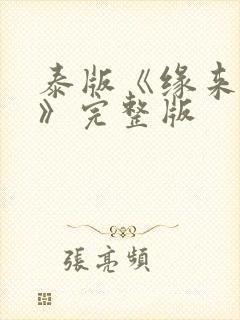 泰版《缘来
》完整版
張亮頻